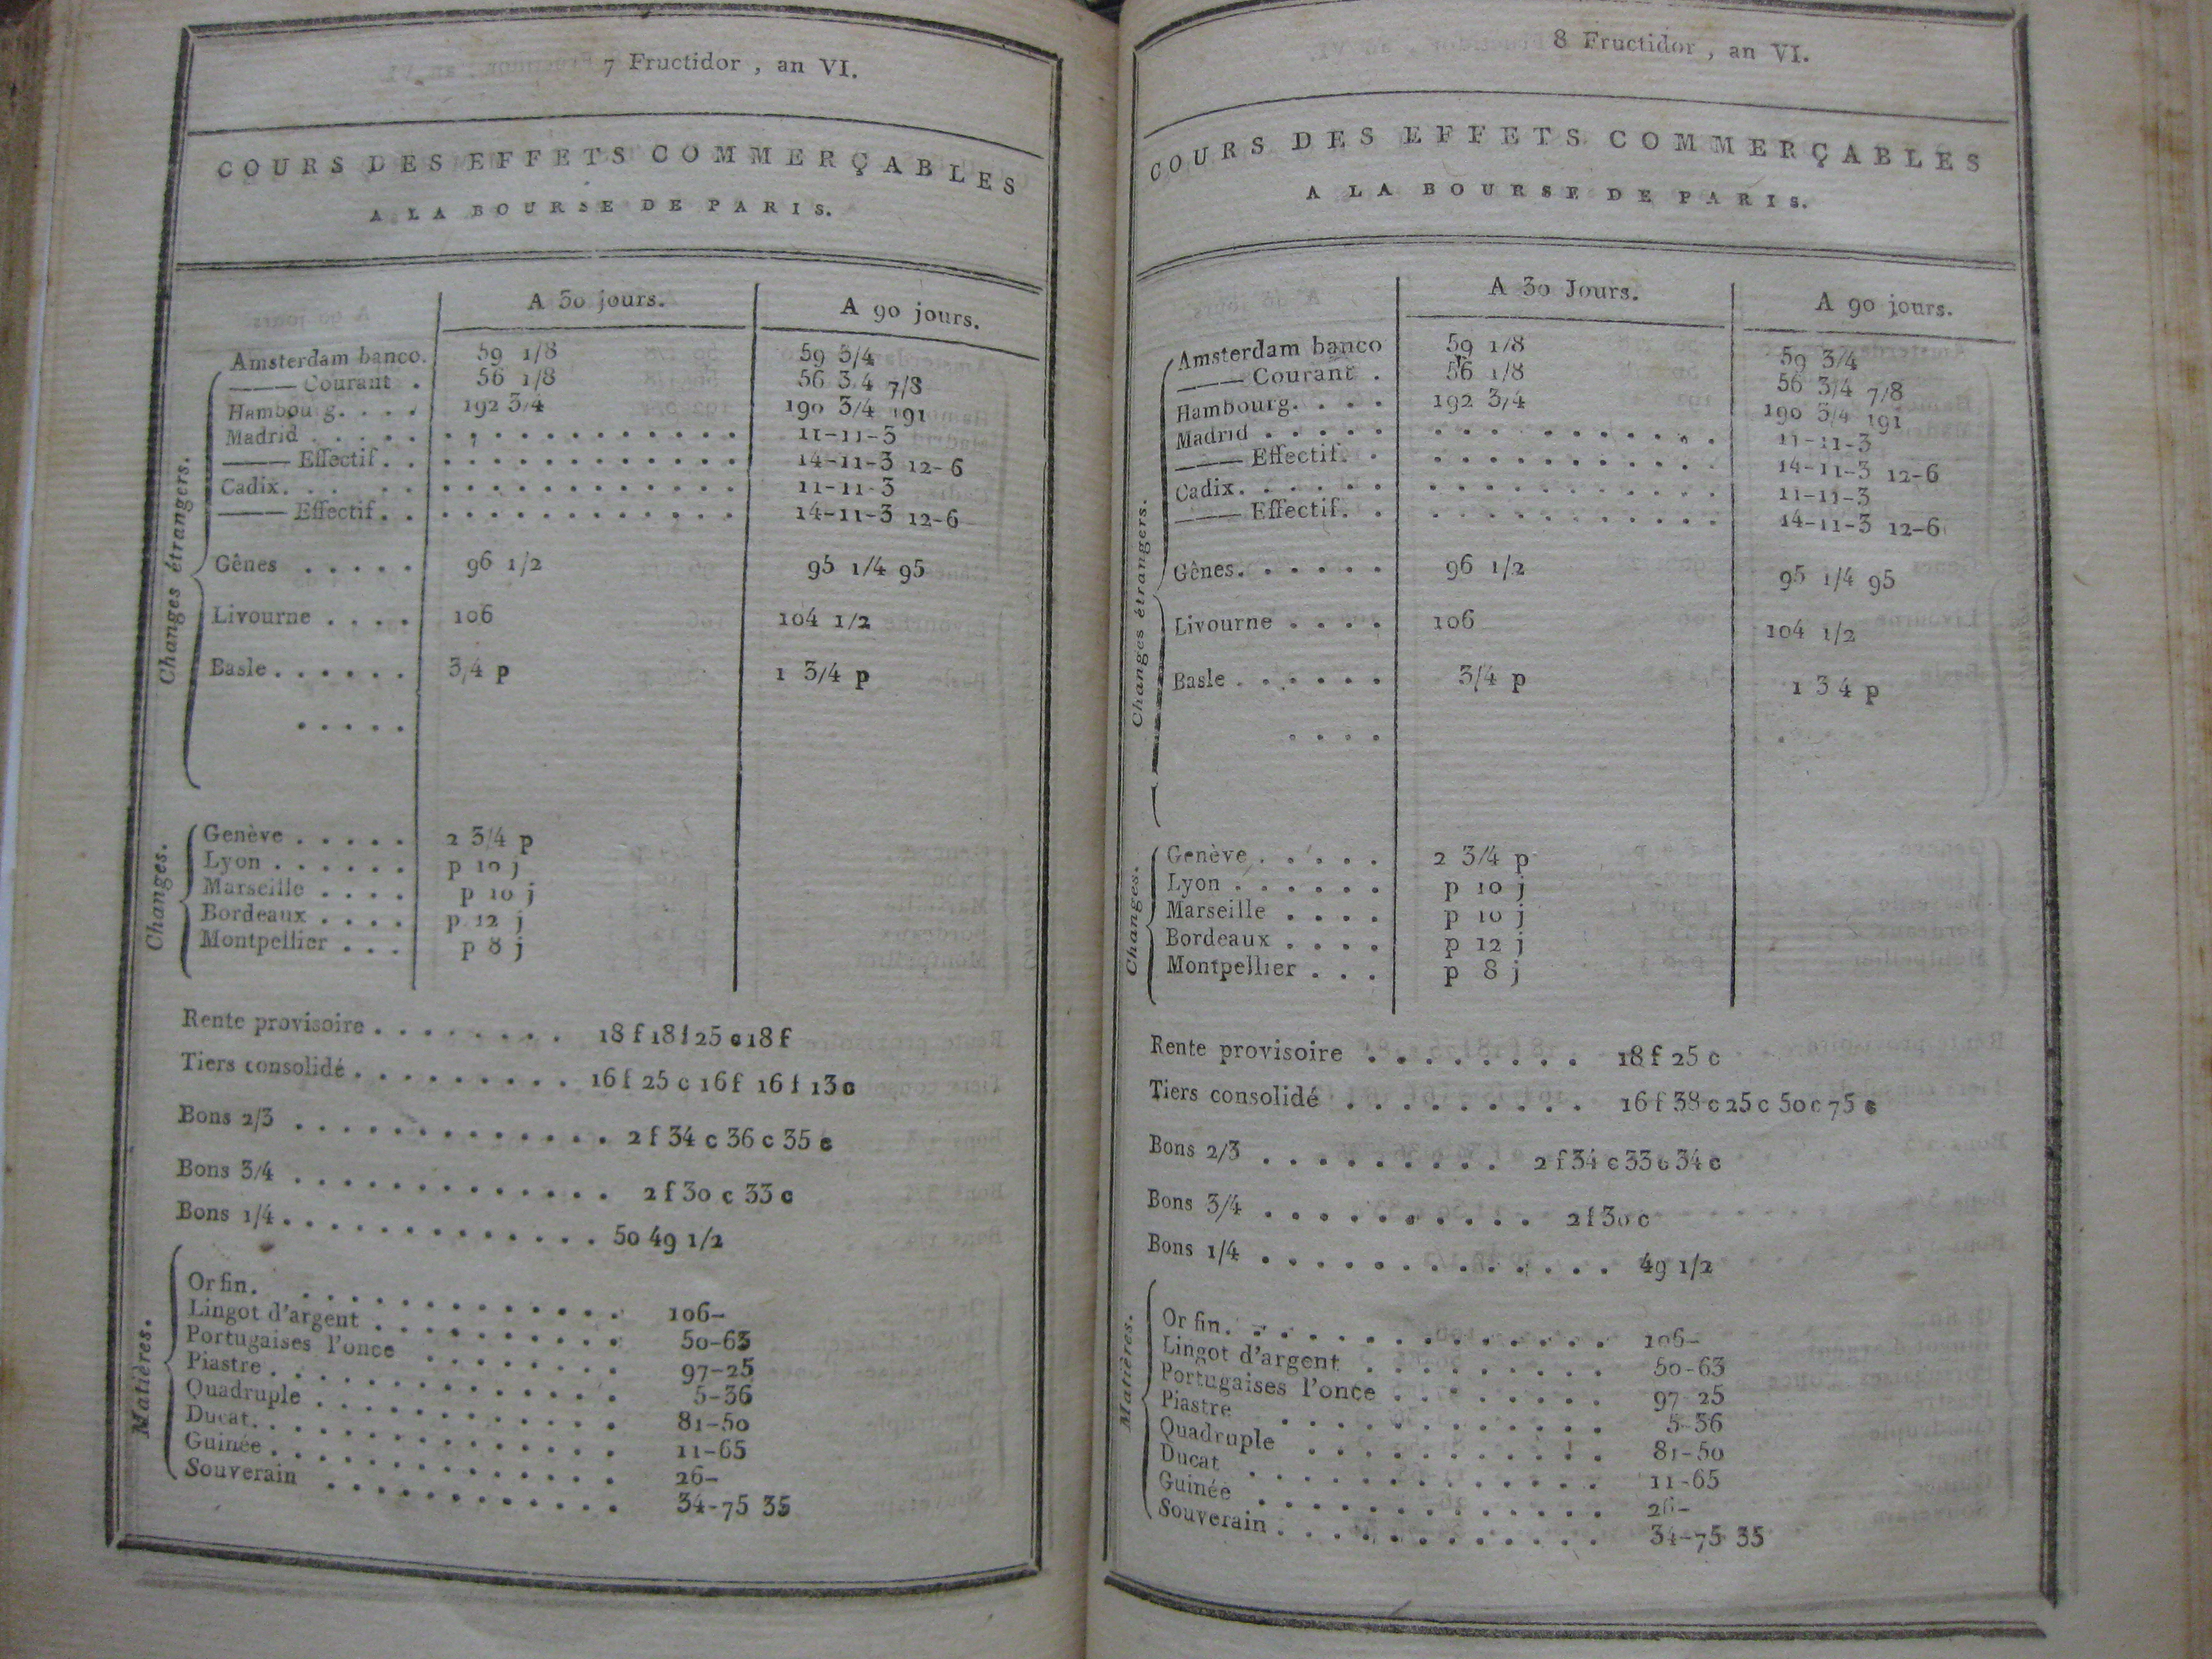 7 Fructidor, an VI.
COURS DES EFFETS COMMERÇABLES
A LA BOURSE DE PARIS.
A 30 jours. A 90 jours.
Changes étrangers.
Amsterdam banco. 59 1/8 59 3/4
—— Courant . 56 1/8 56 3/4 7/8
Hambourg. . . . 192 3/4 190 3/4 191
Madrid . . . . . . . . . . . . . . . . 11-11-3
—— Effectif. . . . . . . . . . . . . 14-11-3 12-6
Cadix. . . . . . . . . . . . . . . . . 11-11-3
—— Effectif. . . . . . . . . . . . . 14-11-3 12-6
Gênes . . . . . 96 1/2 95 1/4 95
Livourne . . . . 106 104 1/2
Basle . . . . . . 3/4 p 1 3/4 p
. . . . .
Changes.
Genève . . . . . 2 3/4 p
Lyon . . . . . . p 10 j
Marseille . . . . p 10 j
Bordeaux . . . . p 12 j
Montpellier . . . p 8 j
Rente provisoire . . . . . . . . 18 f 18 f 25 c 18 f
Tiers consolidé . . . . . . . . . 16 f 25 c 16 f 16 f 13 c
Bons 2/3 . . . . . . . . . . . . . 2 f 34 c 36 c 35 c
Bons 3/4 . . . . . . . . . . . . . 2 f 30 c 33 c
Bons 1/4 . . . . . . . . . . . . . 50 49 1/2
Matières.
Or fin. . . . . . . . . . . . . 106-
Lingot d'argent . . . . . . . . . . 50-63
Portugaises l'once . . . . . . . . 97-25
Piastre . . . . . . . . . . . . . 5-36
Quadruple . . . . . . . . . . . . 81-50
Ducat. . . . . . . . . . . . . . 11-65
Guinée . . . . . . . . . . . . . 26-
Souverain . . . . . . . . . . . . 34-75 35
8 Fructidor, an VI.
COURS DES EFFETS COMMERÇABLES
A LA BOURSE DE PARIS.
A 30 Jours. A 90 jours.
Changes étrangers.
Amsterdam banco 59 1/8 59 3/4
—— Courant . 56 1/8 56 3/4 7/8
Hambourg. . . . 192 3/4 190 3/4 191
Madrid . . . . . . . . . . . . . . . . 11-11-3
—— Effectif. . . . . . . . . . . . . 14-11-3 12-6
Cadix. . . . . . . . . . . . . . . . . 11-11-3
—— Effectif. . . . . . . . . . . . . 14-11-3 12-6
Gênes. . . . . . 96 1/2 95 1/4 95
Livourne . . . . 106 104 1/2
Basle . . . . . . 3/4 p 1 3 4 p
. . . .
Changes.
Genève . . . . . 2 3/4 p
Lyon . . . . . . p 10 j
Marseille . . . . p 10 j
Bordeaux . . . . p 12 j
Montpellier . . . p 8 j
Rente provisoire . . . . . . . . 18 f 25 c
Tiers consolidé . . . . . . . . . 16 f 38 c 25 c 50 c 75 c
Bons 2/3 . . . . . . . . . 2 f 34 c 33 c 34 c
Bons 3/4 . . . . . . . . . . 2 f 30 c
Bons 1/4 . . . . . . . . . . . . . 49 1/2
Matières.
Or fin. . . . . . . . . . . . . 106-
Lingot d'argent . . . . . . . . . 50-63
Portugaises l'once . . . . . . . . 97-25
Piastre . . . . . . . . . . . . 5-36
Quadruple . . . . . . . . . . . 81-50
Ducat . . . . . . . . . . . . . 11-65
Guinée . . . . . . . . . . . . . 26-
Souverain . . . . . . . . . . . . 34-75 35